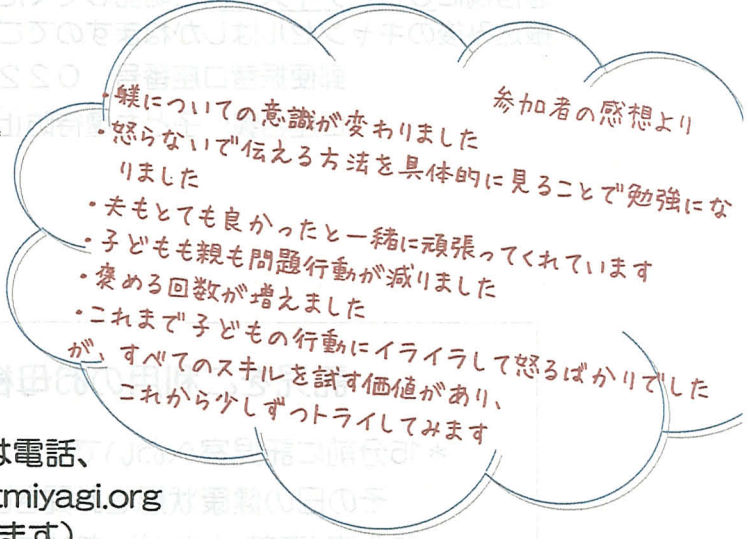 参加者の感想より
・躾についての意識が変わりました
・怒らないで伝える方法を具体的に見ることで勉強にな
りました
・夫もとても良かったと一緒に頑張ってくれています
・子どもも親も問題行動が減りました
・褒める回数が増えました
・これまで子どもの行動にイライラして怒るばかりでした
が、すべてのスキルを試す価値があり、
これから少しずつトライしてみます
は電話、
tmiyagi.org
ます)